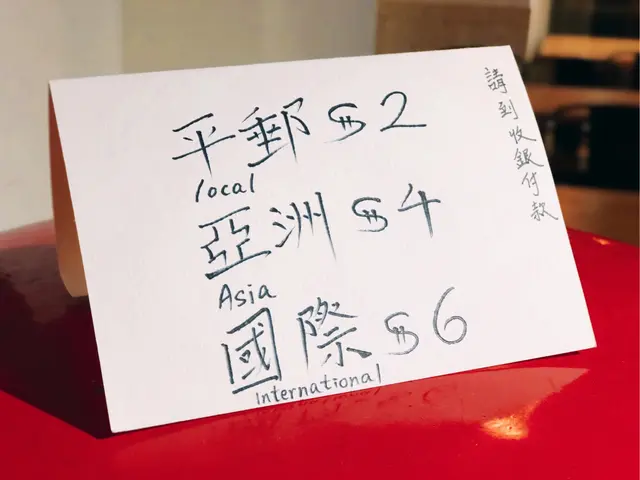 平郵 $2
local
亞洲 $4
Asia
國際 $6
International
請到收銀付款